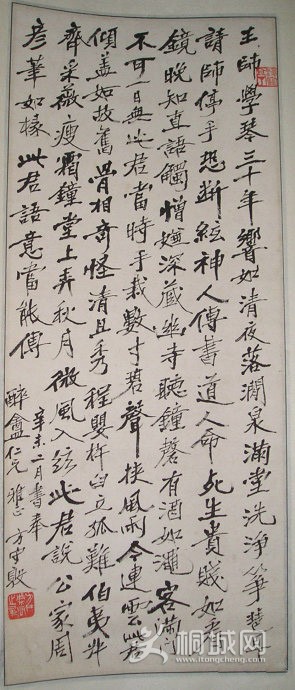 王師學琴三十年響如清夜落澗泉滿堂洗淨箏琶
請師停手恐斷絃神人傳書道人命死生貴賤如看
鏡晚知直語觸憎嫌深藏幽寺聽鐘磬有酒如澠客滿門
不可一日無此君當時手栽數寸碧聲挾風雨今連雲此君
傾蓋如故舊骨相奇怪清且秀程嬰杵臼立孤難伯夷叔
齊采薇瘦霜鐘堂上弄秋月微風入絃此君說公家周
彥筆如椽此君語意當能傳
辛未二月書奉
醉盦仁兄雅正 方守敦
桐城网
www.itongcheng.com